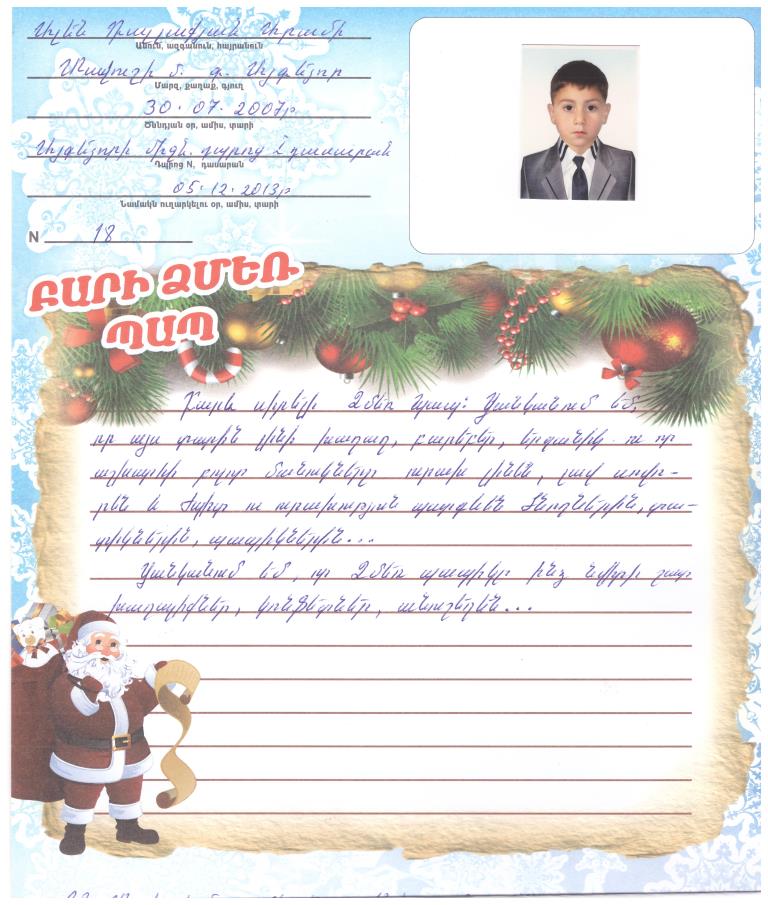 Ալեն Դալլաքյան Արամի
Անուն, ազգանուն, հայրանուն
Տավուշի մ. գ. Այգեձոր
Մարզ, քաղաք, գյուղ
30.07.2007թ
Ծննդյան օր, ամիս, տարի
Այգեձորի միջն. դպրոց I դասարան
Դպրոց N, դասարան
05.12.2013թ
Նամակն ուղարկելու օր, ամիս, տարի
N 18
ԲԱՐԻ ՁՄԵՌ
ՊԱՊ
սիրելի Ձմեռ պապ: Ցանկանում եմ,
որ այս տարին լինի խաղաղ, բարեբեր, երջանիկ ու որ
աշխարհի բոլոր մանուկները ուրախ լինեն, լավ սովո-
րեն և ժպիտ ու ուրախություն պարգևեն ծնողներին, տա-
տիկներին, պապիկներին...
Ցանկանում եմ, որ Ձմեռ պապիկը ինձ նվիրի շատ
խաղալիքներ, կոնֆետներ, անուշեղեն...